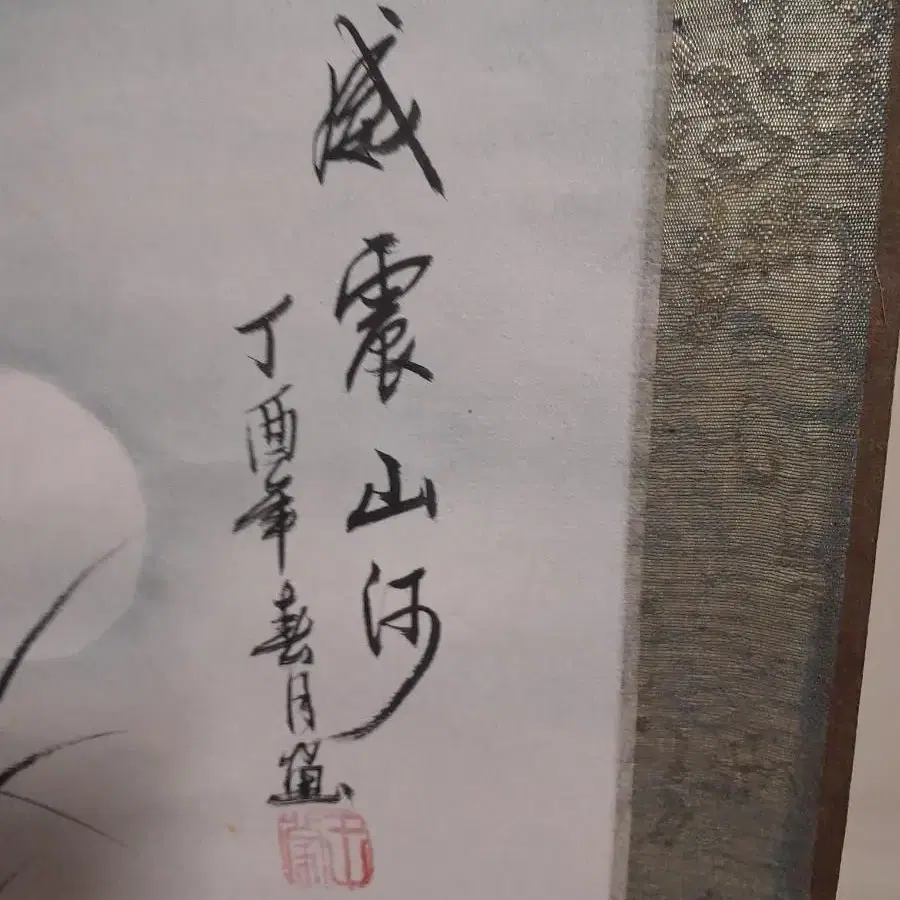 威震山河
丁酉年春月畫